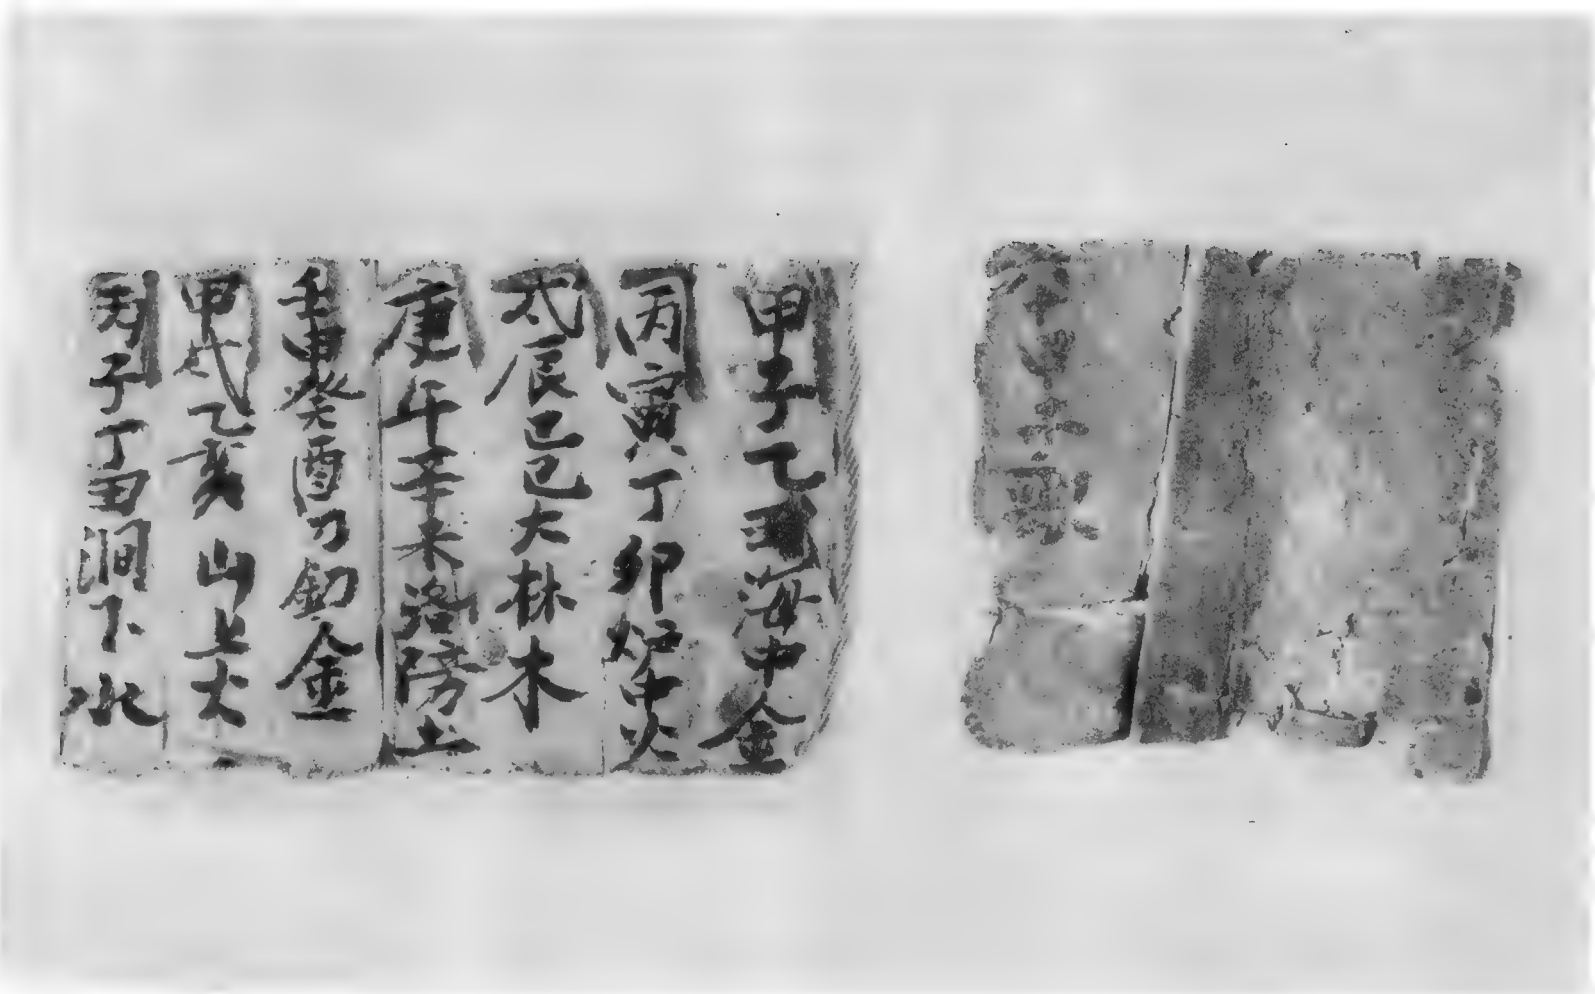 甲子乙丑海中金
丙寅丁卯炉中火
戊辰己巳大林木
庚午辛未路傍土
壬申癸酉刃釖金
甲戌乙亥山上火
丙子丁丑澗下水